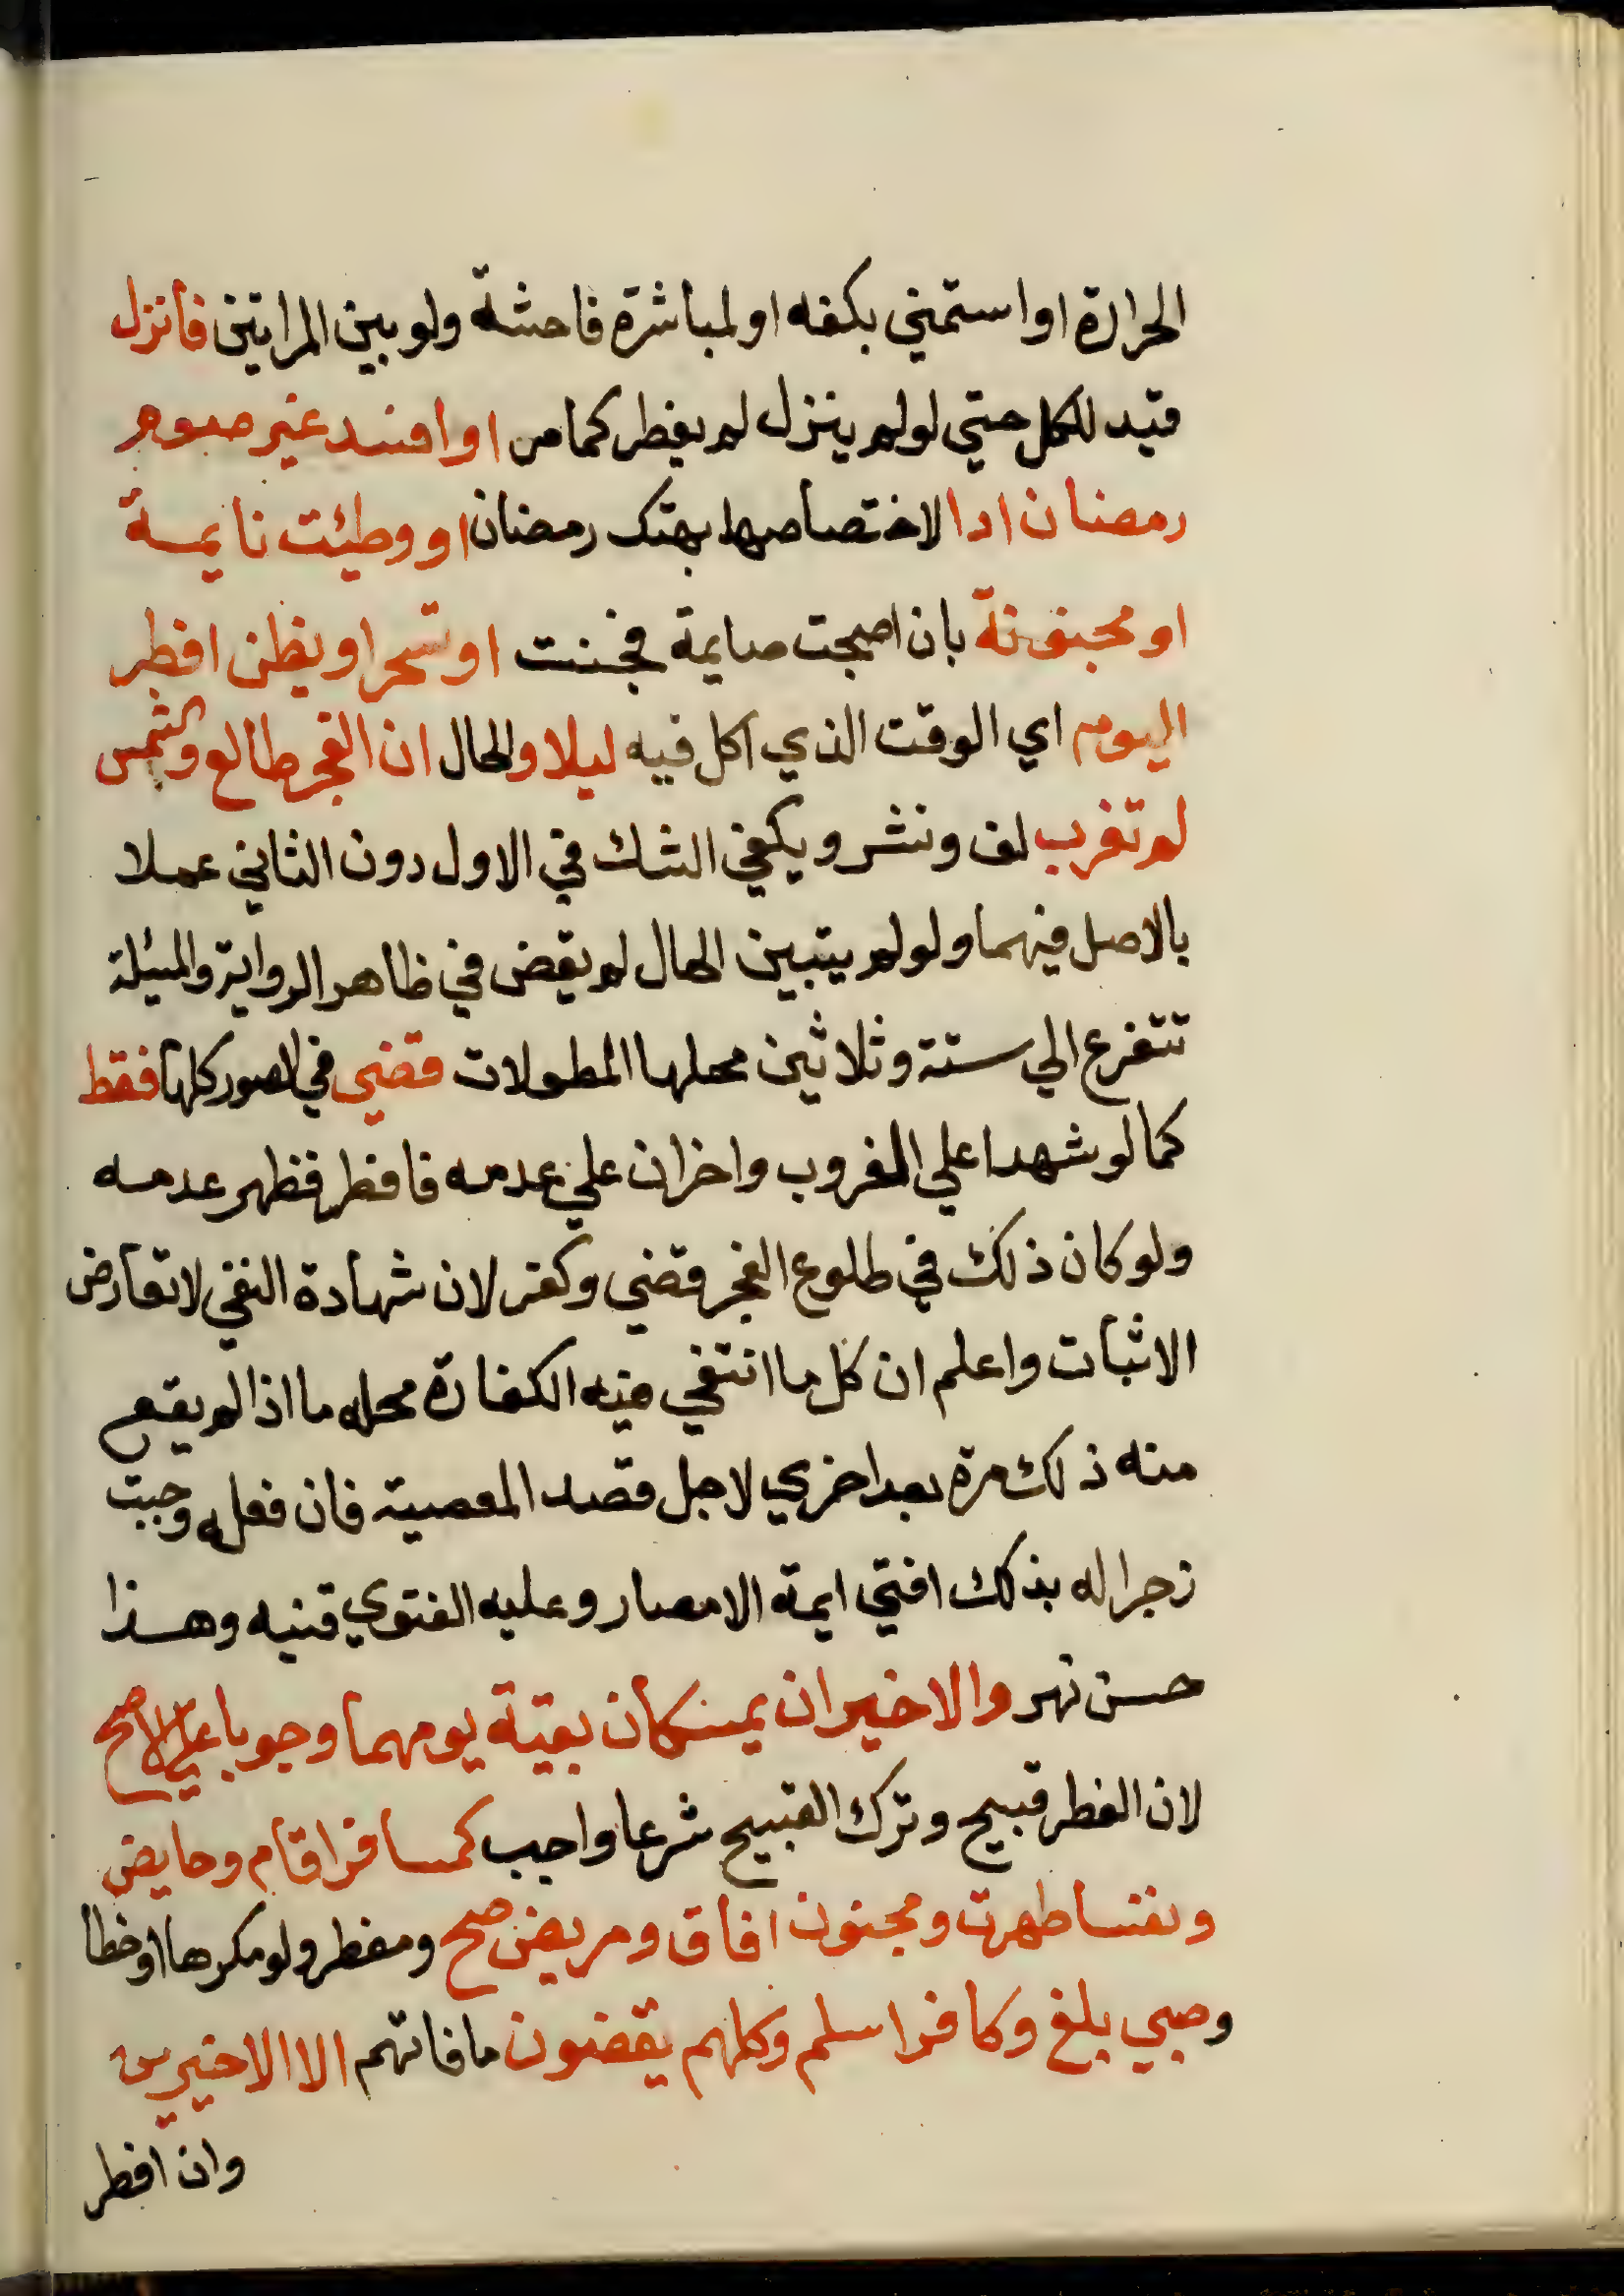 الحرارة او استمني بكفه او لمباشرة فاحشة ولو بين المراتين فانزل
قيد للكل حتي لو لم ينزل لم يفطر كما مر او افسد غير صوم
رمضان ادا لاختصاصها بهتك رمضان او وطئت نايمة
او مجنونة بان اصبحت صايمة فجنت او تسحر او يظن افطر
اليوم اي الوقت الذي اكل فيه ليلا والحال ان الفجر طالع والشمس
لم تغرب لف ونشر ويكفي الشك في الاول دون الثاني عملا
بالاصل فيهما ولو لم يتبين الحال لم يقض في ظاهر الرواية والمسئلة
تتفرع الي ستة وثلاثين محلها المطولات قضي في الصور كلها فقط
كما لو شهدا علي الغروب واخران علي عدمه فافطر فظهر عدمه
ولو كان ذلك في طلوع الفجر قضي وكفر لان شهادة النفي لا تعارض
الاثبات واعلم ان كل ما انتفي فيه الكفارة محله ما اذا لم يقع
منه ذلك مرة بعد اخري لاجل قصد المعصية فان فعله وجبت
زجرا له بذلك افتي ايمة الامصار وعليه الفتوي قنيه وهذا
حسن نهر والاخيران يمسكان بقية يومهما وجوبا علي الاصح
لان الفطر قبيح وترك القبيح شرعا واجب كمسافر اقام وحايض
ونفسا طهرت ومجنون افاق ومريض صح ومفطر ولو مكرها او خطا
وصبي بلغ وكافر اسلم وكلهم يقضون ما فاتهم الا الاخيرين
وان افطر